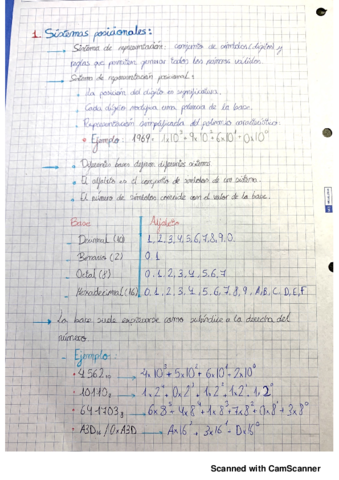 1. Sistemas posicionales:
→ Sistema de representación: conjunto de símbolos (dígitos) y
reglas que permiten generar todos los números válidos.
→ Sistema de representación posicional:
• La posición del dígito es significativa.
• Cada dígito multiplica una potencia de la base.
• Representación simplificada del polinomio característico.
* Ejemplo: 1969 = 1x10³+9x10²+6x10¹+
→ • Diferentes bases definen diferentes sistemas
• El alfabeto es el conjunto de símbolos de un sistema.
• El número de símbolos coincide con el valor de la base.
Base Alfabeto
– Decimal (10) 1, 2, 3, 4, 5, 6, 7, 8, 9, 0
– Binario (2) 0, 1
– Octal 0, 1, 2, 3, 4, 5, 6, 7
– Hexadecimal (16) 0, 1, 2, 3, 4, 5, 6, 7, 8, 9, A, B, C, D, E, F
→ La base suele expresarse como subíndice a la derecha del
número.
– Ejemplo:
• 4562₁₀ → 4x10³+5x10²+6x10¹+2x10⁰
• 10110₂ →
• 641703₈ → 6x8⁵+4x8⁴+1x8³+7x8²+0x8¹+3x8⁰
• A3D₁₆ / 0xA3D → Ax16² + 3x16¹ + Dx16⁰
Scanned with CamScanner